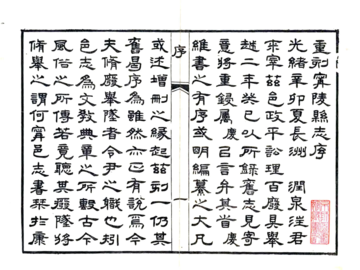 重刻甯陵縣志序
光緒辛卯夏長洲 潤泉汪君
來宰茲邑政平訟理百廢具舉
越二年癸巳以所錄舊志見寄
意將重鋟屬慶曰言弁其耑慶
維書之有序或明編纂之大凡
序
一
或述增刪之緣起茲刻一仍其
舊曷序為雖然亦已有說焉今
夫脩廢舉墜者令尹之職也矧
邑志為文教典章之所 古今
風俗之所傳若竟聽其廢墜將
脩舉之謂何甯邑志書 於康